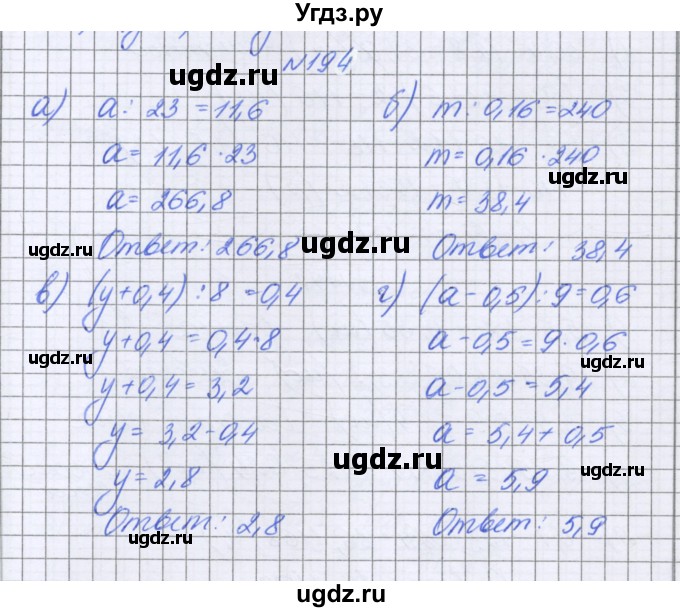 Угдз.ру
№194
а) a : 23 = 11,6
a = 11,6 · 23
a = 266,8
Ответ: 266,8
б) m : 0,16 = 240
m = 0,16 · 240
m = 38,4
Ответ: 38,4
в) (y+0,4) : 8 = 0,4
y+0,4 = 0,4·8
y+0,4 = 3,2
y = 3,2-0,4
y = 2,8
Ответ: 2,8
г) (a-0,5) : 9 = 0,6
a-0,5 = 9·0,6
a-0,5 = 5,4
a = 5,4+0,5
a = 5,9
Ответ: 5,9
ugdz.ru
ugdz.ru
ugdz.ru
ugdz.ru
ugdz.ru
ugdz.ru
ugdz.ru
ugdz.ru
ugdz.ru
ugdz.ru